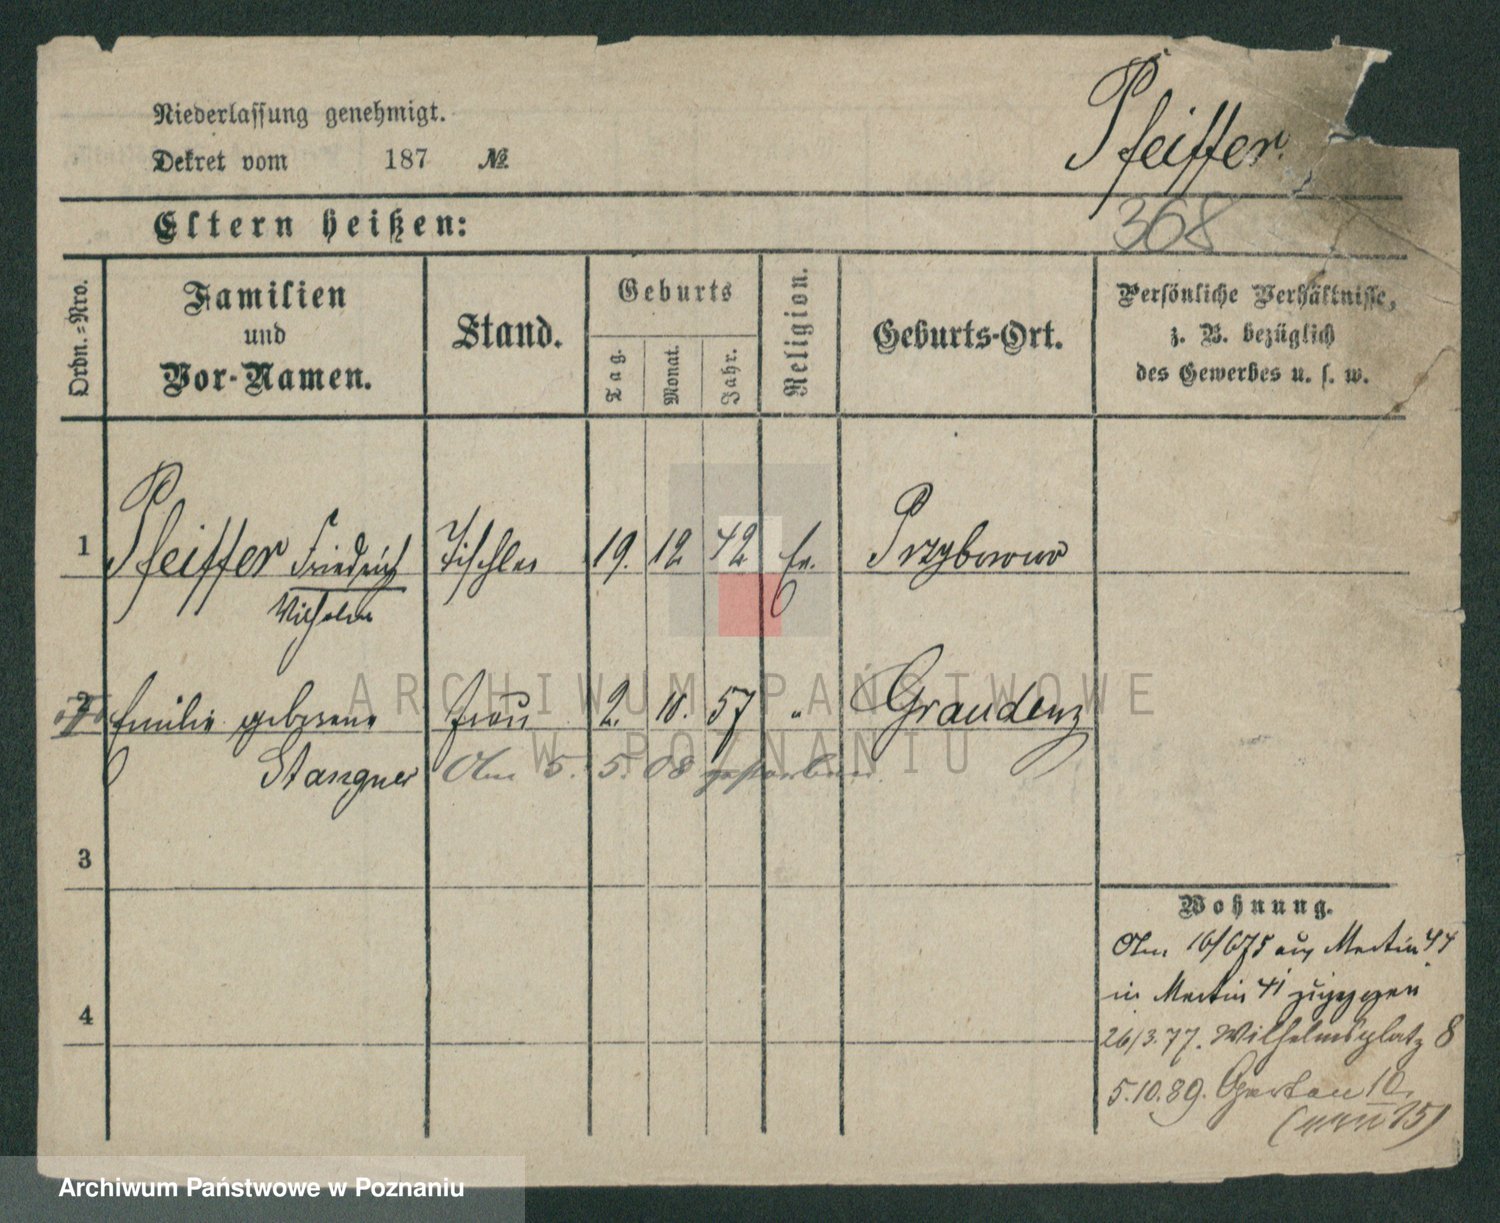 Niederlassung genehmigt.
Dekret vom 187 №
Pfeiffer.
368
Eltern heißen:
Ordn.=Nro.
Familien
und
Vor-Namen.
Stand.
Geburts
Tag.
Monat.
Jahr.
Religion.
Geburts-Ort.
Persönliche Verhältnisse,
z. B. bezüglich
des Gewerbes u. s. w.
1 Pfeiffer Friedrich Tischler 19. 12 42 Ev. Przyborowo
Wilhelm
2 Emilie geborene Frau 2. 10. 57 " Graudenz
Stangner Am 5. 5. 08 gestorben.
3
4
Wohnung.
Am 16/6 75 aus Martin 44
in Martin 41 zugezogen
26/3.77. Wilhelmsplatz 8
5.10.89. Garten 10.
(neu 15)
ARCHIWUM PAŃSTWOWE
W POZNANIU
Archiwum Państwowe w Poznaniu